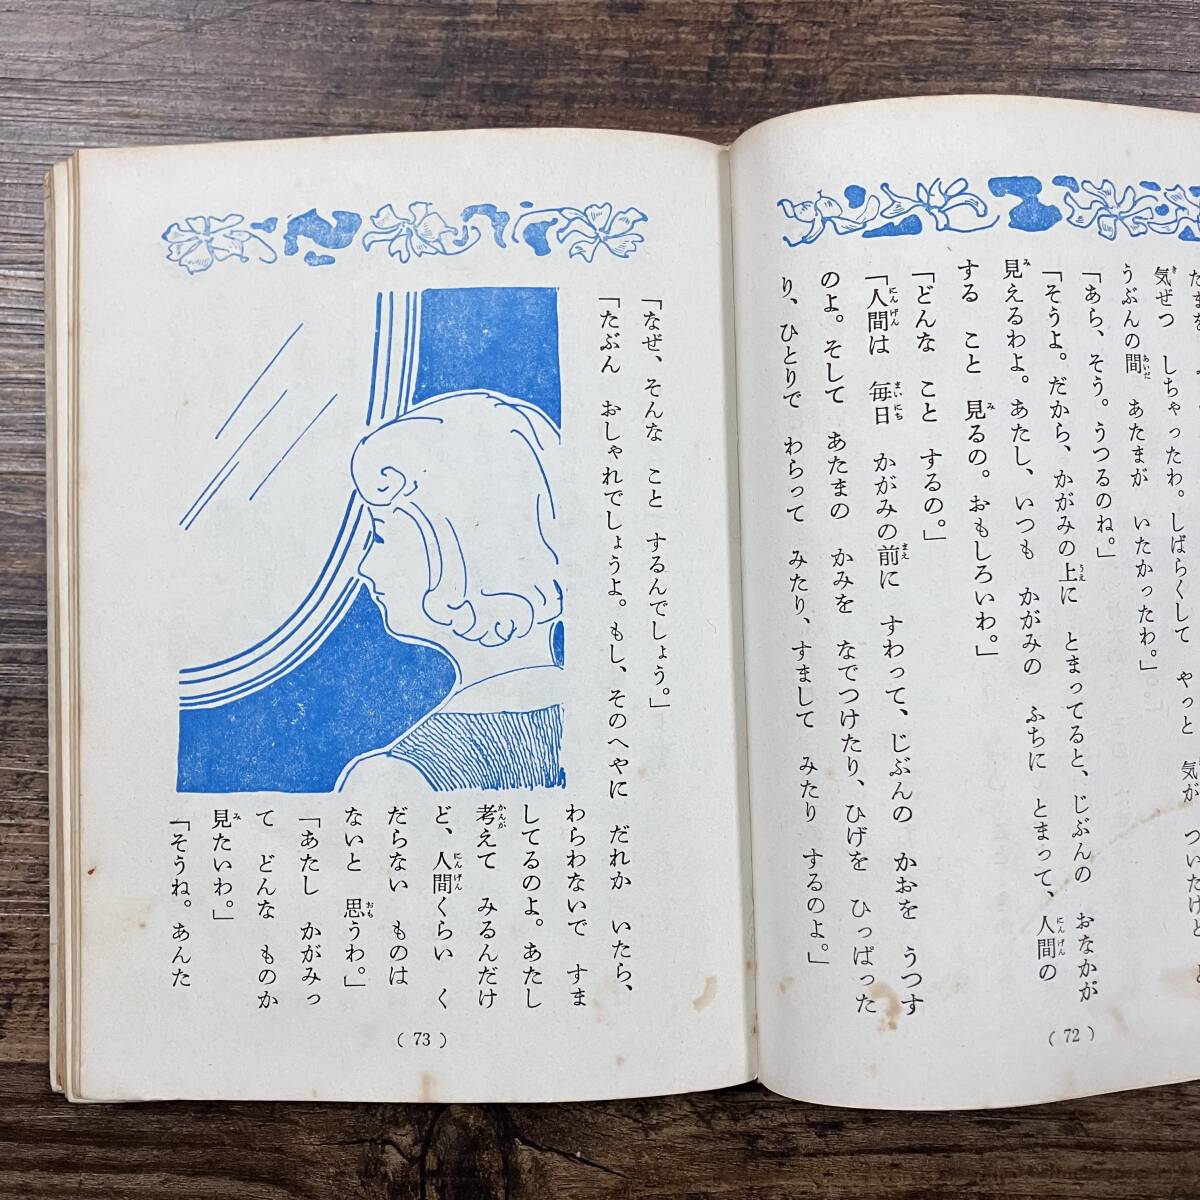 気ぜつ しちゃったわ。しばらくして やっと 気が ついたけど
うぶんの間 あたまが いたかったわ。」
「あら、そう。うつるのね。」
「そうよ。だから、かがみの上に とまってると、じぶんの おなかが
見えるわよ。あたし、いつも かがみの ふちに とまって、人間の
する こと 見るの。おもしろいわ。」
「どんな こと するの。」
「人間は 毎日 かがみの前に すわって、じぶんの かおを うつす
のよ。そして あたまの かみを なでつけたり、ひげを ひっぱった
り、ひとりで わらって みたり、すまして みたり するのよ。」
(72)
「なぜ、そんな こと するんでしょう。」
「たぶん おしゃれでしょうよ。もし、そのへやに だれか いたら、
わらわないで すま
してるのよ。あたし
考えて みるんだけ
ど、人間くらい く
だらない ものは
ないと 思うわ。」
「あたし かがみっ
て どんな ものか
見たいわ。」
「そうね。あんた
(73)